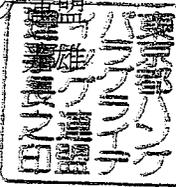 東京都ハング
パラグライデ
ィング連盟
長之印
盟
雄